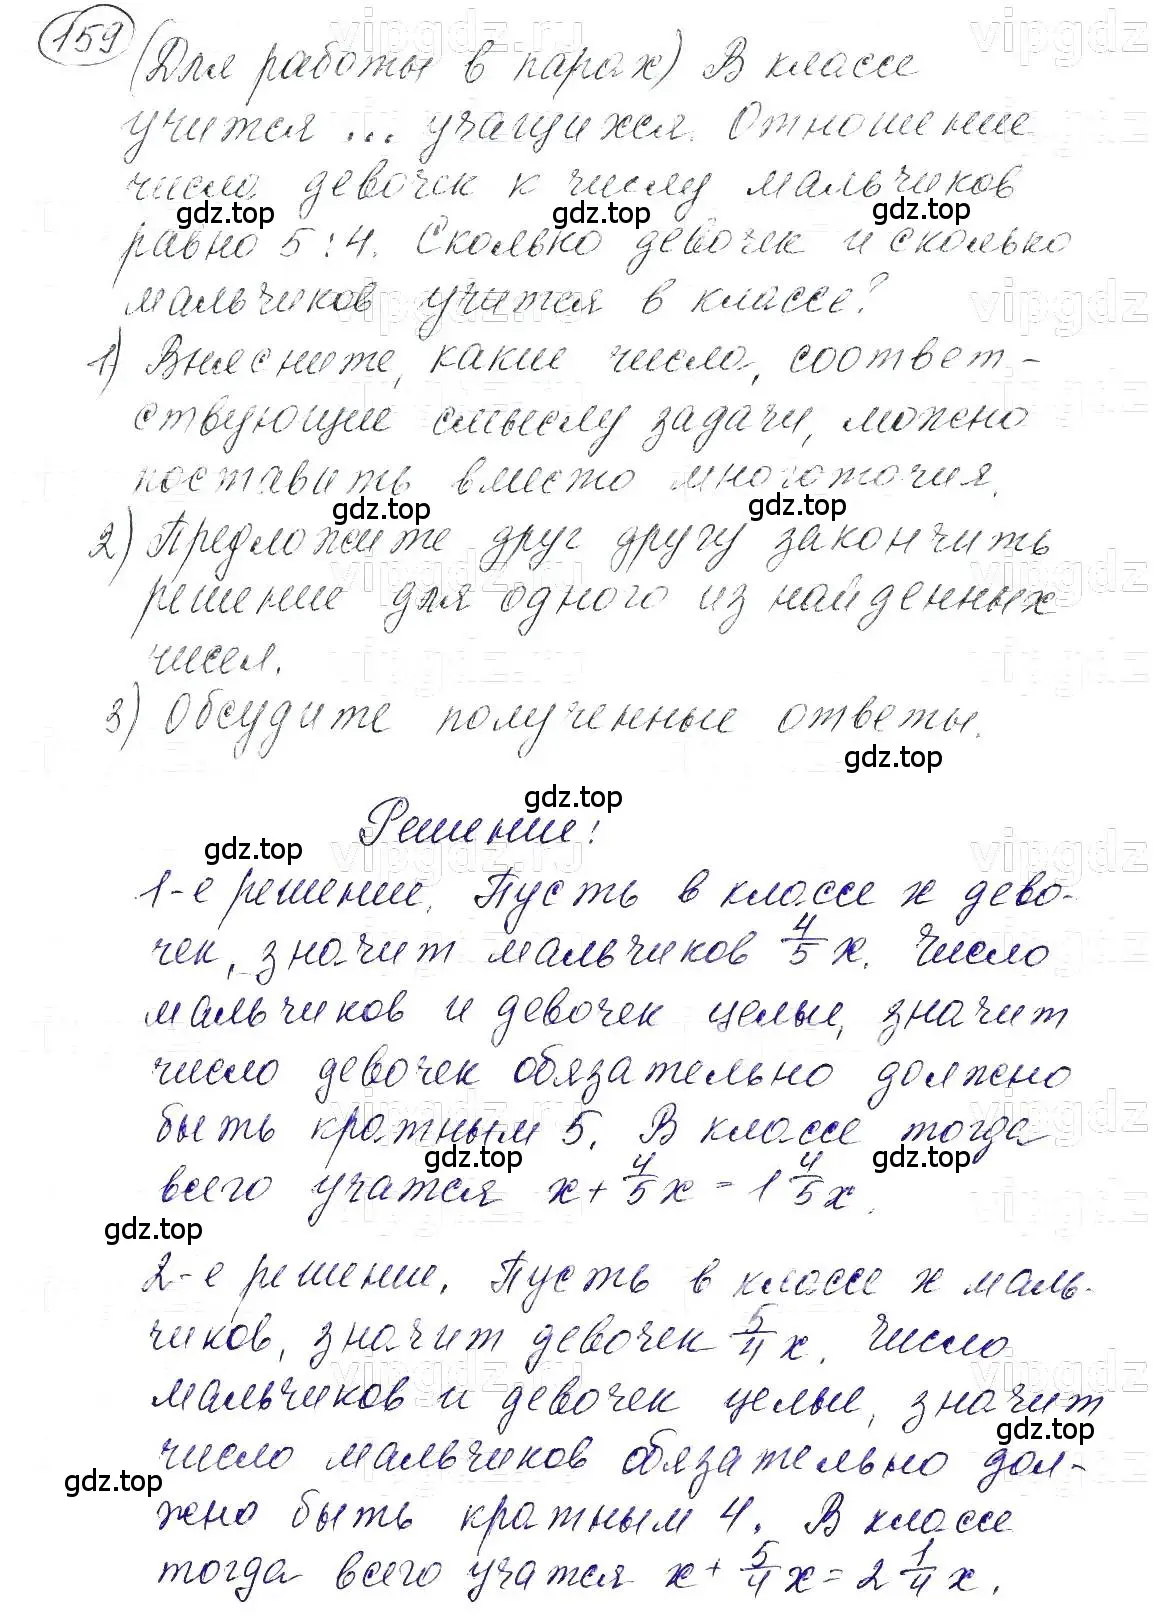 159 (Для работы в парах) В классе
учится ... учащихся. Отношение
числа девочек к числу мальчиков
gdz.top gdz.top gdz.top
равно 5:4. Сколько девочек и сколько
мальчиков учится в классе?
1) Выясните, какие числа, соответ-
ствующие смыслу задачи, можно
поставить вместо многоточия.
gdz.top gdz.top
2) Предложите друг другу закончить
решение для одного из найденных
чисел.
3) Обсудите полученные ответы.
gdz.top
gdz.top
Решение:
gdz.top
1-е решение. Пусть в классе x дево-
чек, значит мальчиков 4/5 x. Число
мальчиков и девочек целые, значит
число девочек обязательно должно
быть кратным 5. В классе тогда
gdz.top gdz.top
всего учатся x + 4/5 x = 1 4/5 x.
gdz.top
2-е решение. Пусть в классе x маль-
чиков, значит девочек 5/4 x. Число
мальчиков и девочек целые, значит
gdz.top
число мальчиков обязательно дол-
gdz.top
жно быть кратным 4. В классе
тогда всего учатся x + 5/4 x = 2 1/4 x.